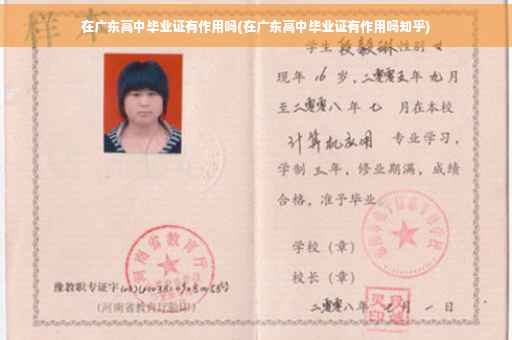 在广东高中毕业证有作用吗(在广东高中毕业证有作用吗知乎)
样本
学生段毅琳性别女
现年16岁，二零零五年九月
至二零零八年七月在本校
计算机应用 专业学习，
学制三年，修业期满，成绩
合格，准予毕业。
学校（章）
校长（章）
二零零八年七月一日
河南省教育厅
豫教职专证字
(河南省教育厅验印)